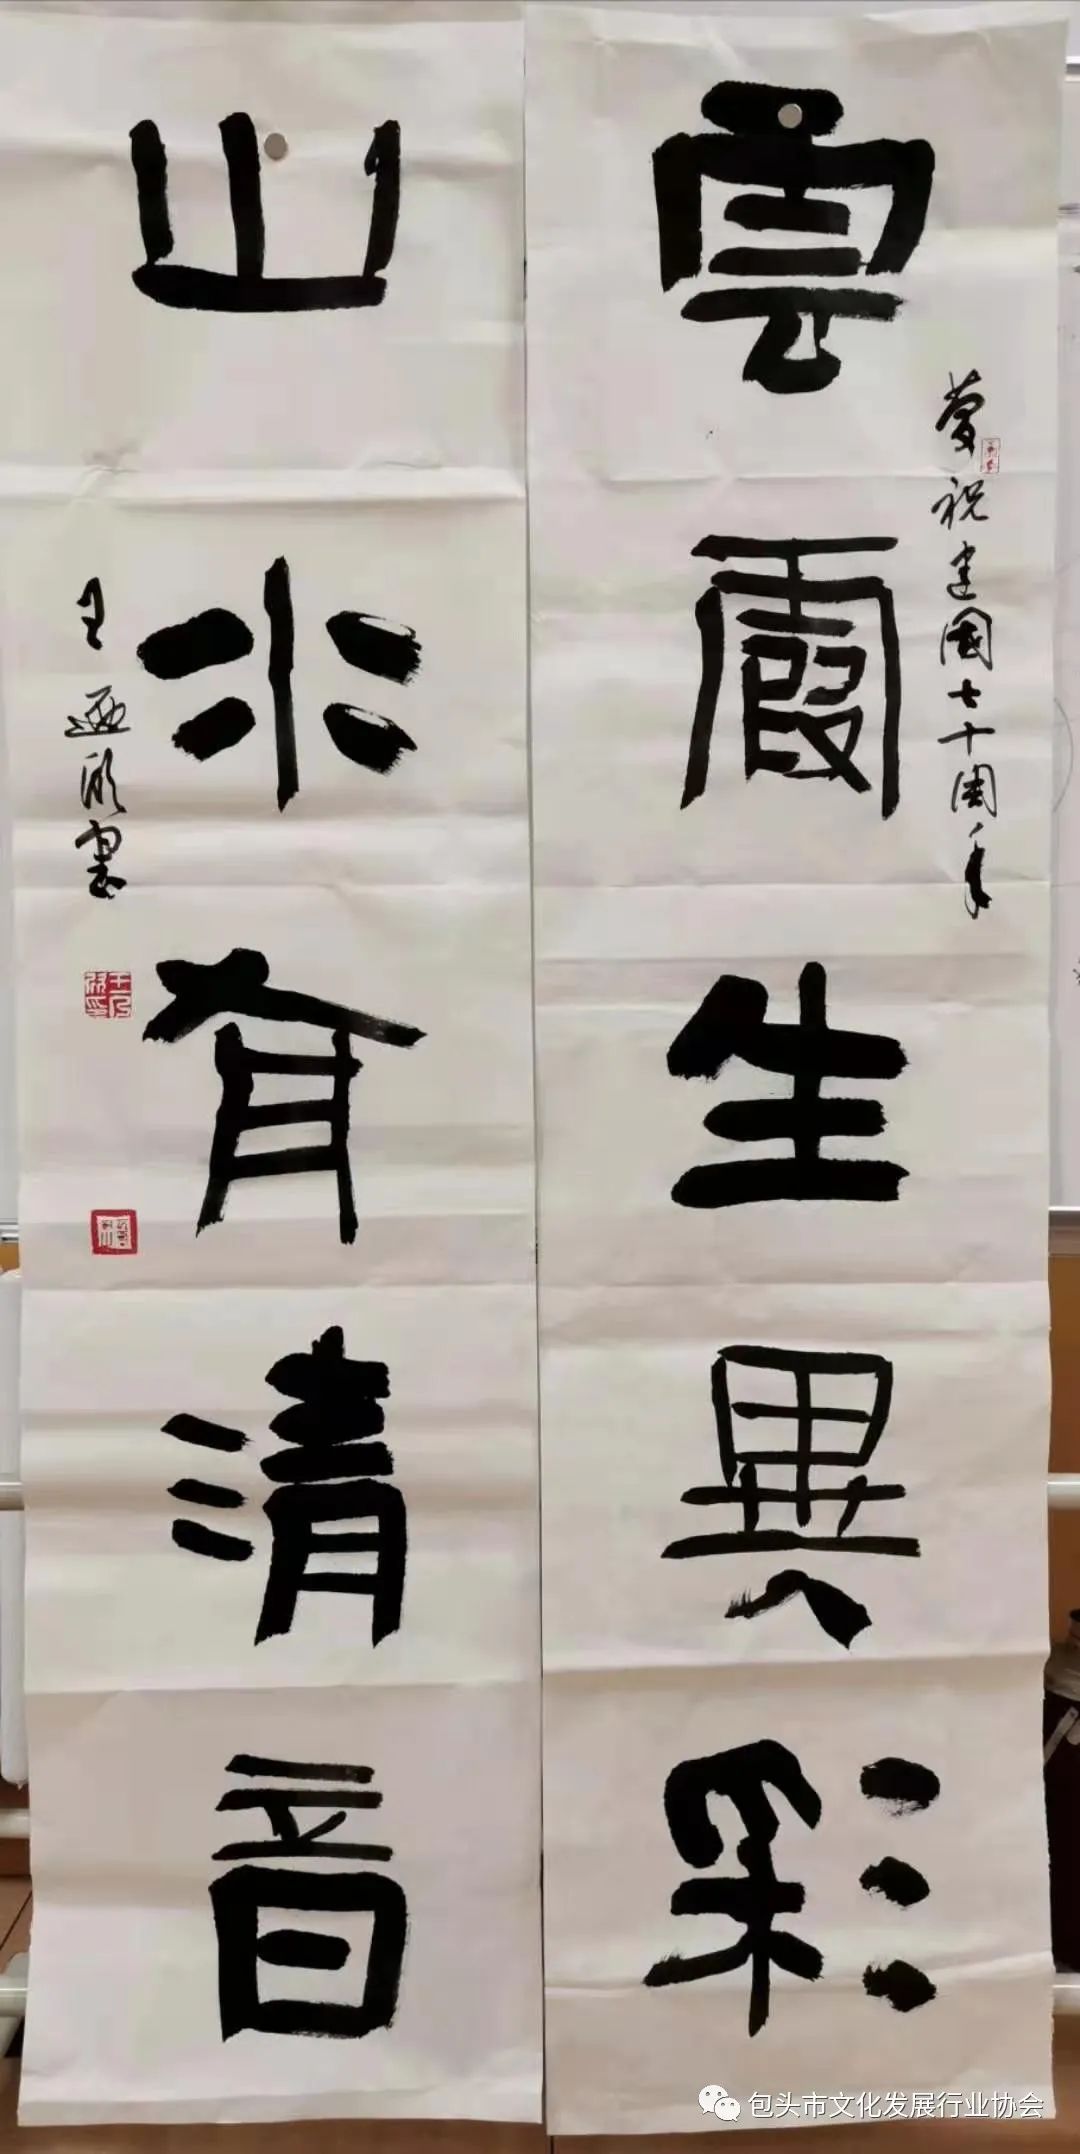 雲霞生異彩
慶祝建國七十周年
山水有清音
王迺欣書
包头市文化发展行业协会